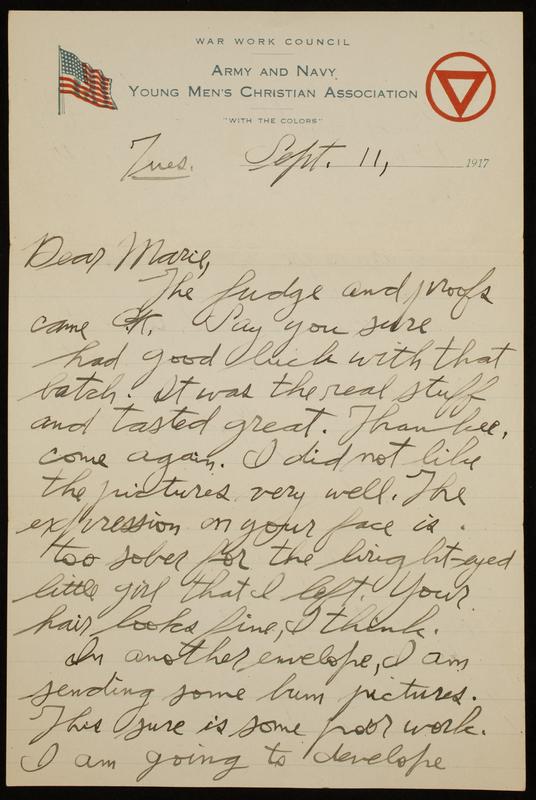 WAR WORK COUNCIL
ARMY AND NAVY
YOUNG MEN'S CHRISTIAN ASSOCIATION
"WITH THE COLORS"
Tues. Sept. 11, 1917
Dear Marie,
The fudge and proofs
came O.K. Say you sure
had good luck with that
batch. It was the real stuff
and tasted great. Thankee,
come again. I did not like
the pictures very well. The
expression on your face is
too sober for the bright-eyed
little girl that I left. Your
hair looks fine, I think.
In another envelope, I am
sending some bum pictures.
This sure is some poor work.
I am going to develope